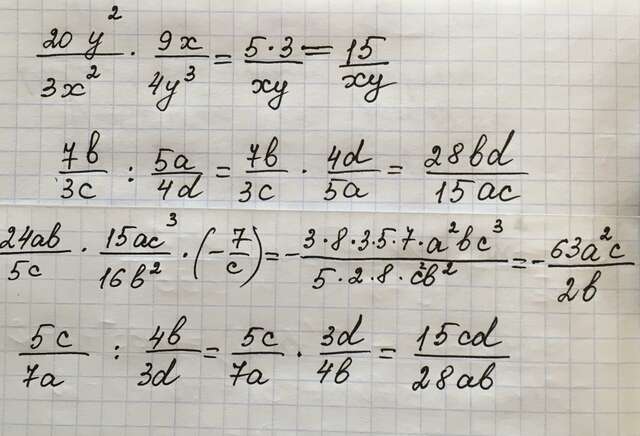 20y²/3x² · 9x/4y³ = 5·3/xy = 15/xy
7b/3c : 5a/4d = 7b/3c · 4d/5a = 28bd/15ac
24ab/5c · 15ac³/16b² · (-7/c) = -3·8·3·5·7·a²bc³/5·2·8·c²b² = -63a²c/2b
5c/7a : 4b/3d = 5c/7a · 3d/4b = 15cd/28ab